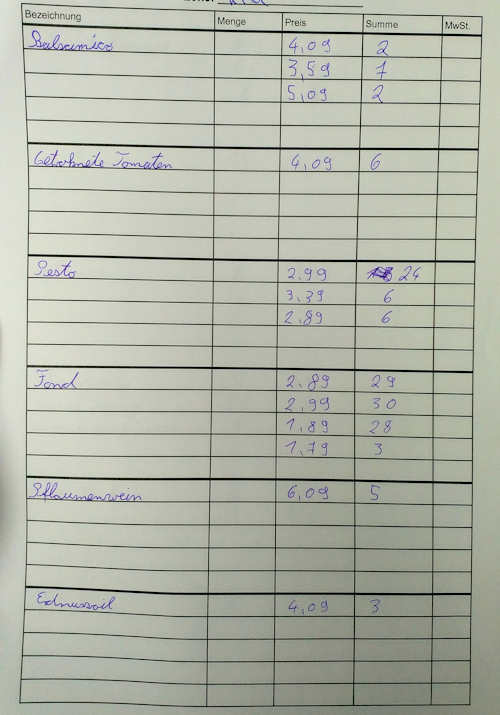 Bezeichnung Menge Preis Summe MwSt.
Balsamico 4,09 2
3,59 7
5,09 2
Getroknete Tomaten 4,09 6
Pesto 2.99 24
3,39 6
2.89 6
Fond 2.89 29
2,99 30
1,89 28
1,79 3
Pflaumenwein 6,09 5
Ednussoil 4,09 3